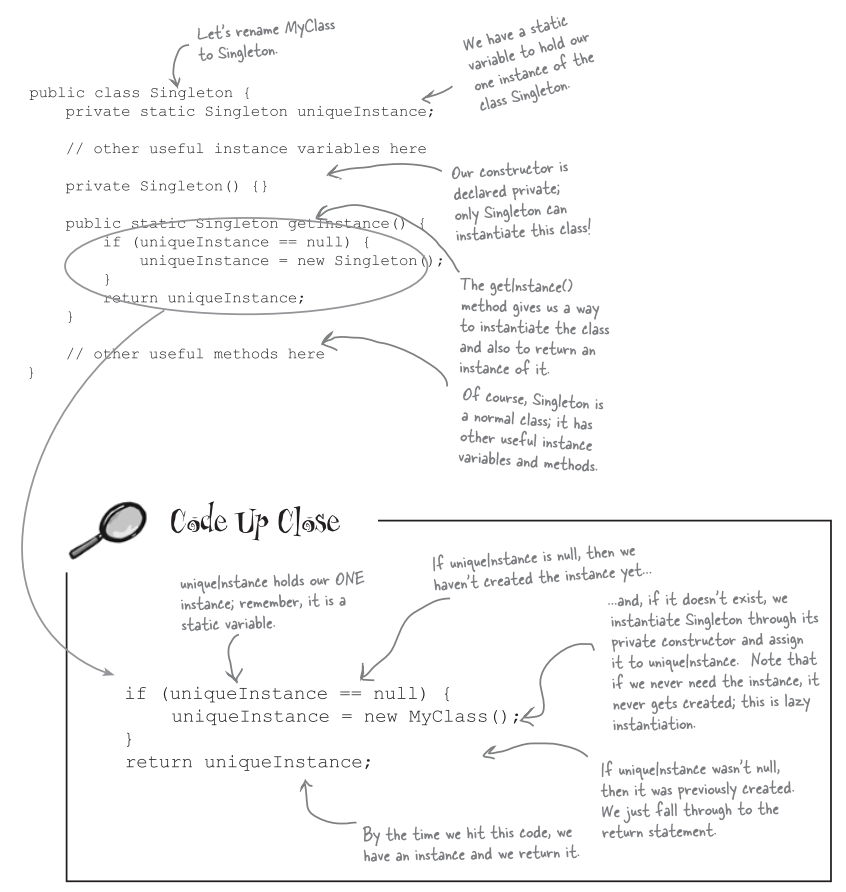 Let's rename MyClass
to Singleton.
We have a static
variable to hold our
one instance of the
class Singleton.
public class Singleton {
private static Singleton uniqueInstance;
// other useful instance variables here
Our constructor is
declared private;
only Singleton can
instantiate this class!
private Singleton() {}
public static Singleton getInstance() {
if (uniqueInstance == null) {
uniqueInstance = new Singleton();
}
return uniqueInstance;
}
The getInstance()
method gives us a way
to instantiate the class
and also to return an
instance of it.
// other useful methods here
}
Of course, Singleton is
a normal class; it has
other useful instance
variables and methods.
Code Up Close
uniqueInstance holds our ONE
instance; remember, it is a
static variable.
If uniqueInstance is null, then we
haven't created the instance yet...
...and, if it doesn't exist, we
instantiate Singleton through its
private constructor and assign
it to uniqueInstance. Note that
if we never need the instance, it
never gets created; this is lazy
instantiation.
if (uniqueInstance == null) {
uniqueInstance = new MyClass();
}
return uniqueInstance;
If uniqueInstance wasn't null,
then it was previously created.
We just fall through to the
return statement.
By the time we hit this code, we
have an instance and we return it.